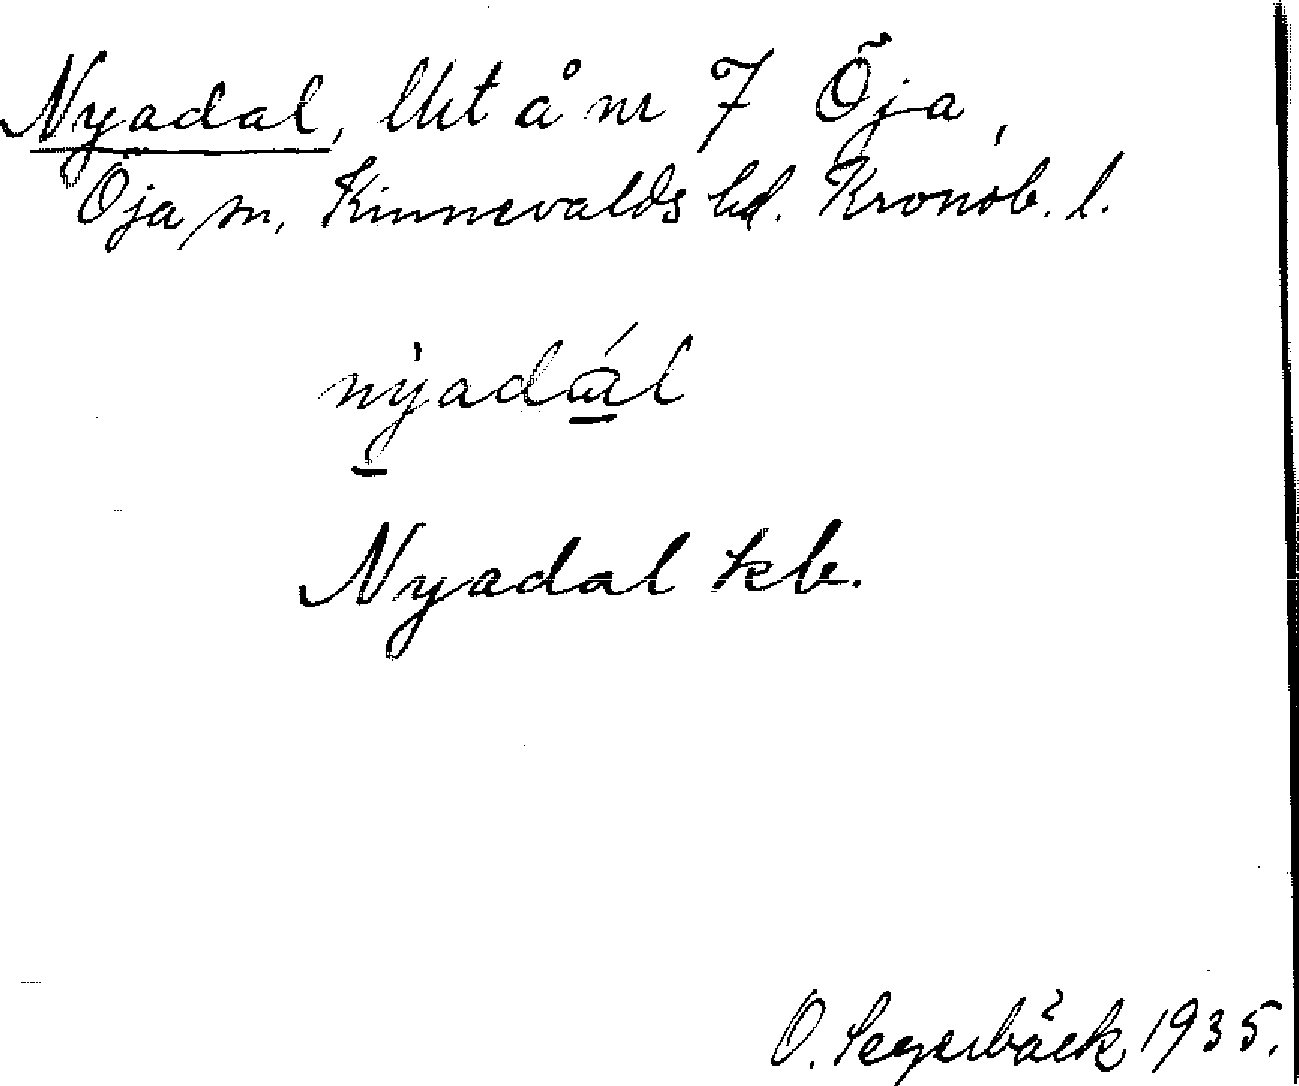 Nyadal, Utt å nr 7 Öja,
Öja sn, Kinnevalds hd. Kronob. l.
nýadál
Nyadal kb.
O. Segerbäck 1935.